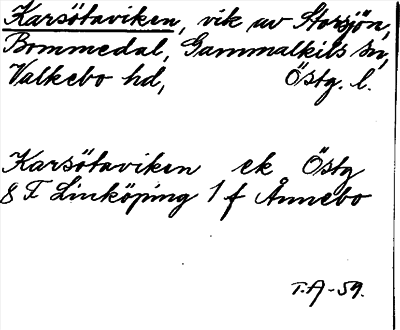 Karsötaviken, vik av Storsjön,
Bommedal, Gammalkils sn,
Valkebo hd, Östg. l.
Karsötaviken ek Östg
8 F Linköping 1 f Ånnebo
T.A-59.